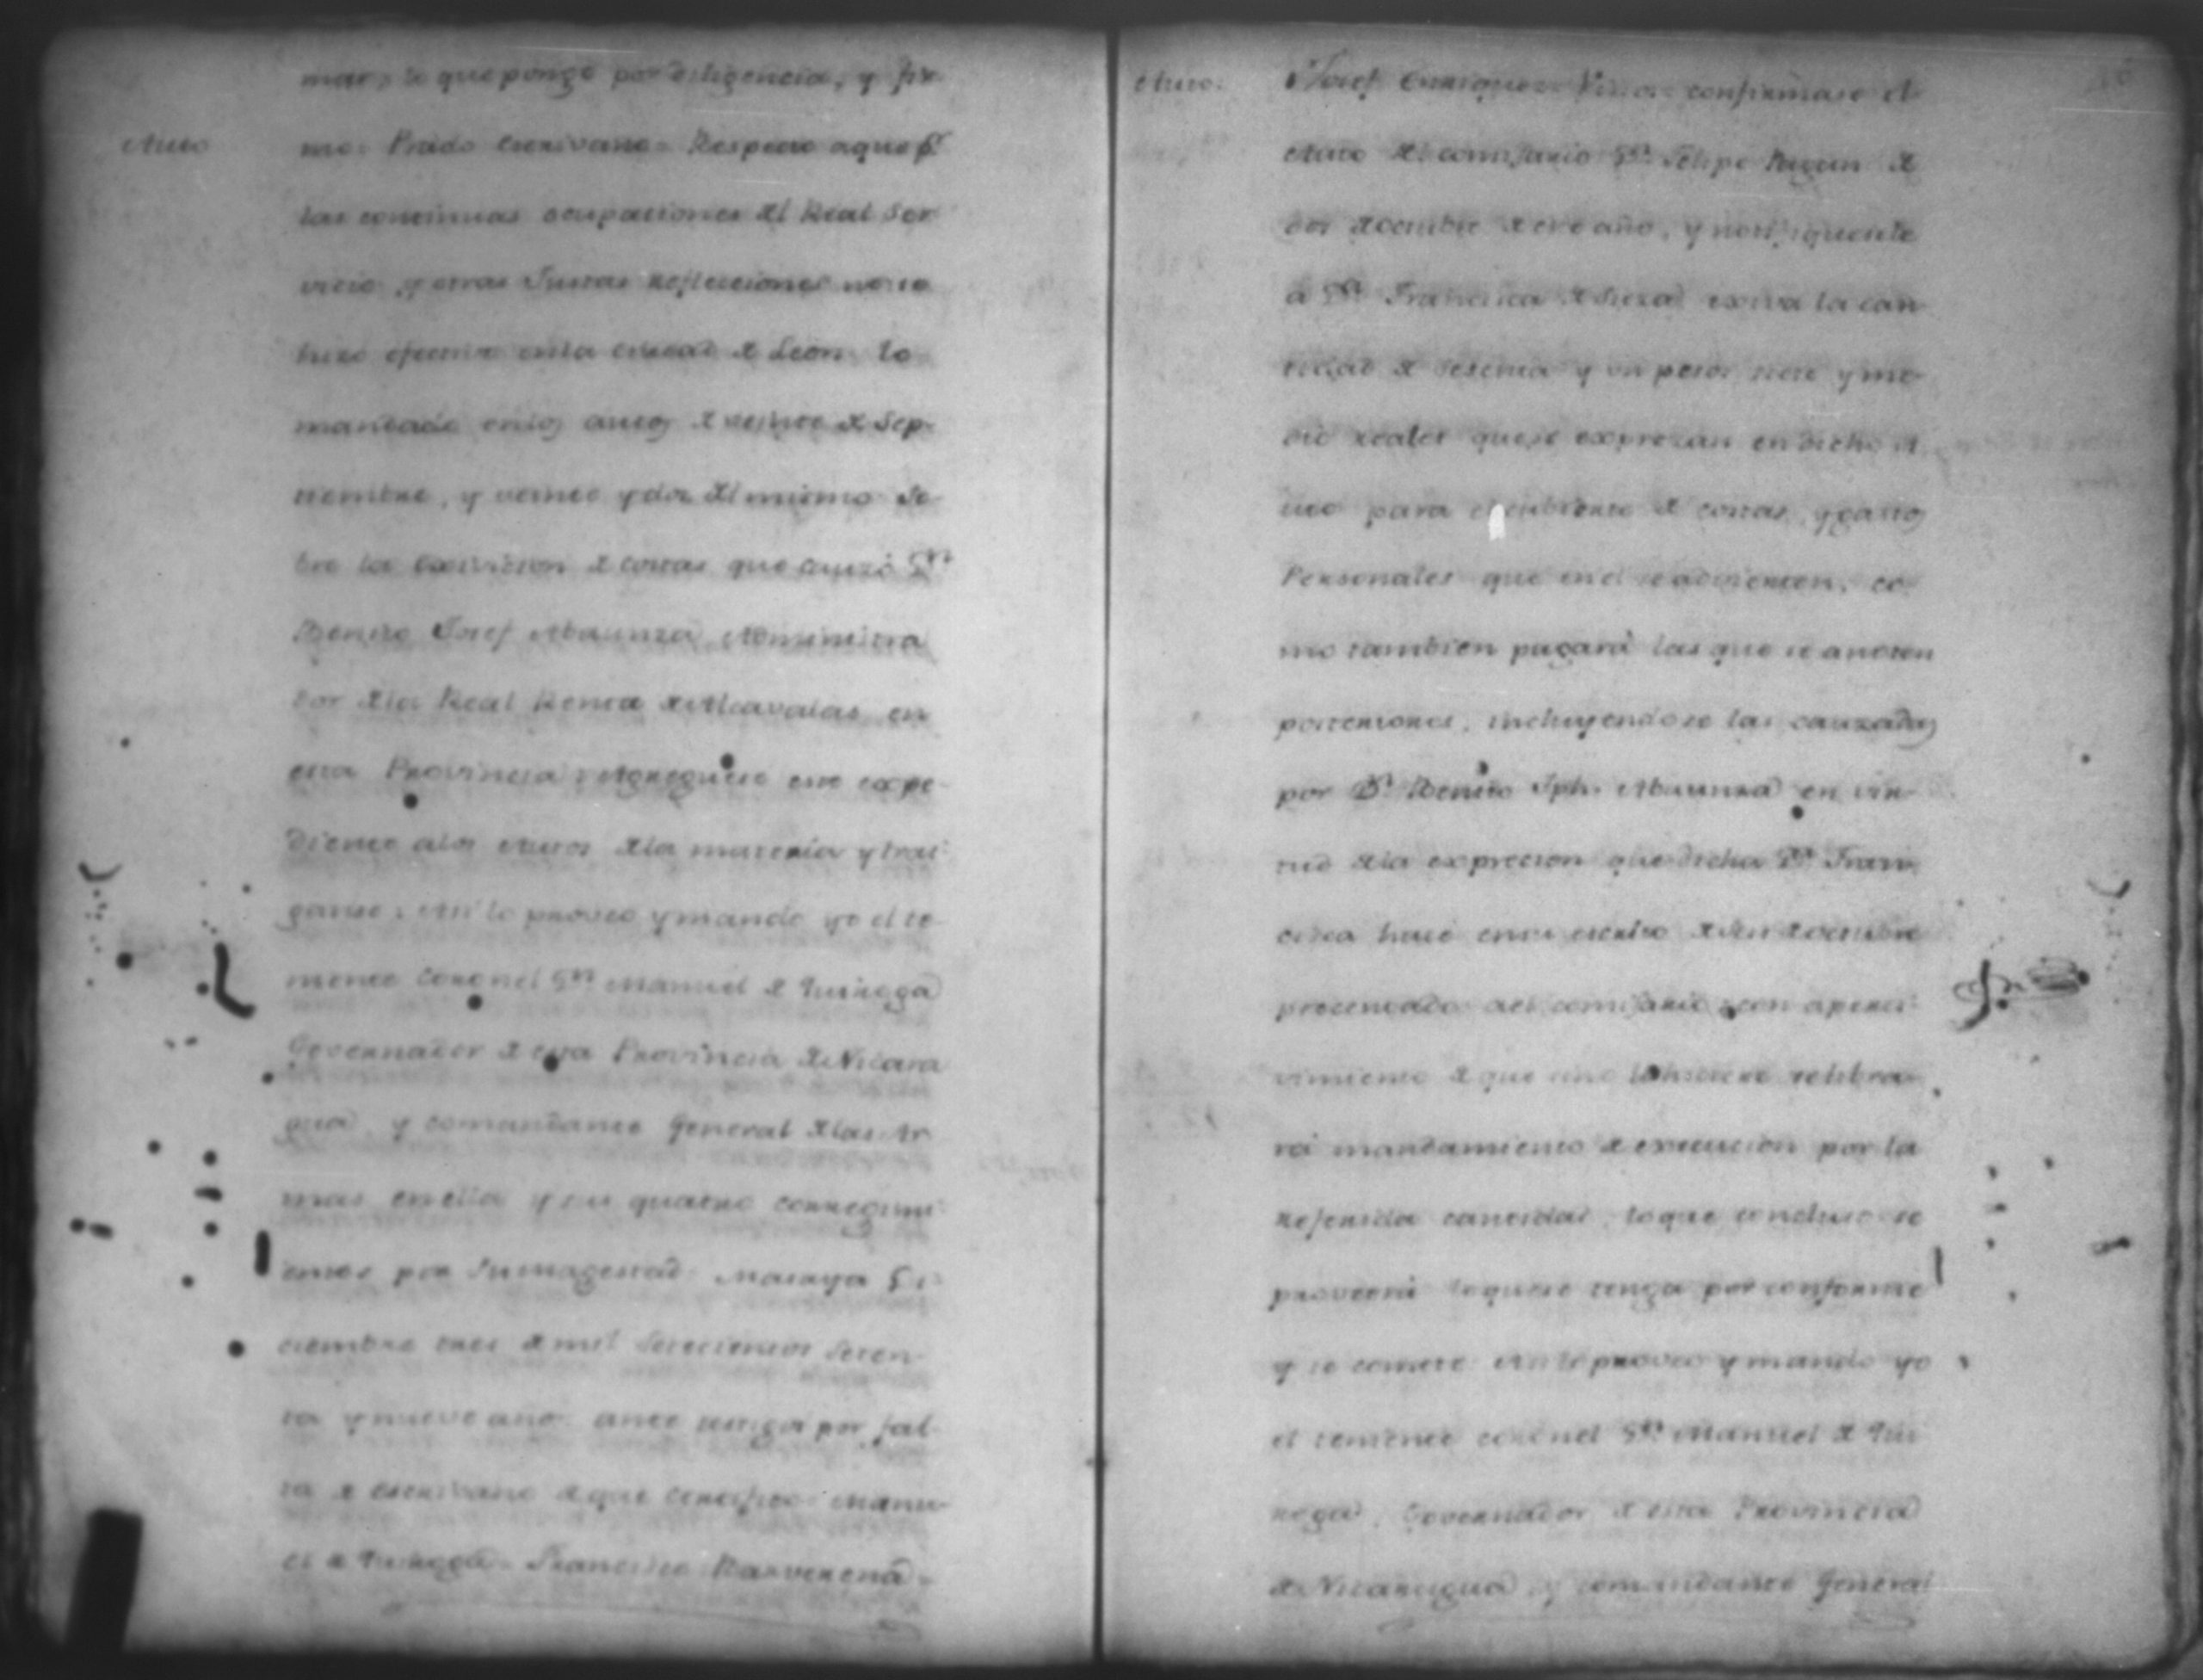 mar, lo que pongo por diligencia, y fir-
Auto
mo. Prado Escrivano = Respecto aque pr
las continuas ocupaciones del Real Ser-
vicio, y otras Justas reflecciones no se
hizo efectivo enla ciudad de Leon lo
mandado enlos autos de veinte de Sep-
tiembre, y veinte y dos del mismo so-
bre la exsivicion de costas que cauzó Dn
Benito Josef Abaunza Administra
dor dela Real Renta de Alcavalas en
esta Provincia: Agreguese este expe-
diente alos Autos dela materia y trai-
ganse: Asi lo proveo y mando yo el te-
niente Coronel Dn Manuel de Quiroga
Governador de esta Provincia de Nicara
gua, y comandante General delas Ar
mas en ella y sus quatro corregimi-
entos por Su magestad. Masaya Di-
ciembre tres de mil Setecientos Seten-
ta y nueve años ante testigos por fal-
ta de escrivano de que certifico = Manu-
el de Quiroga = Francisco Barverena =
Auto.
Josef Enriquez = confirmase el
Auto del comisario Dn Felipe de
dos de octubre de este año, y notifiquesele
a Da Francisca exsiva la can-
tidad de sesenta y un pesos siete y me-
dio reales quese exprezan en dicho A
uto para el cubierto de costas, y gastos
Personales que en el se advierten, co-
mo tambien pagará las que se anoten
posteriores, incluyendose las cauzadas
por Dn Benito Jph. Abaunza en vir-
tud dela exprecion que dicha Da Fran-
cisca hace en su escrito de seis de octubre
precentado al comisario, con aperci-
vimiento de que sino lo hiciere se libra-
rá mandamiento de execucion por la
referida cantidad, lo que concluso se
proveerá loquese tenga por conforme
y se comete. Asi lo proveo y mando yo
el teniente coronel Dn Manuel de Qui
roga, Governador de esta Provincia
de Nicaragua, y comandante General